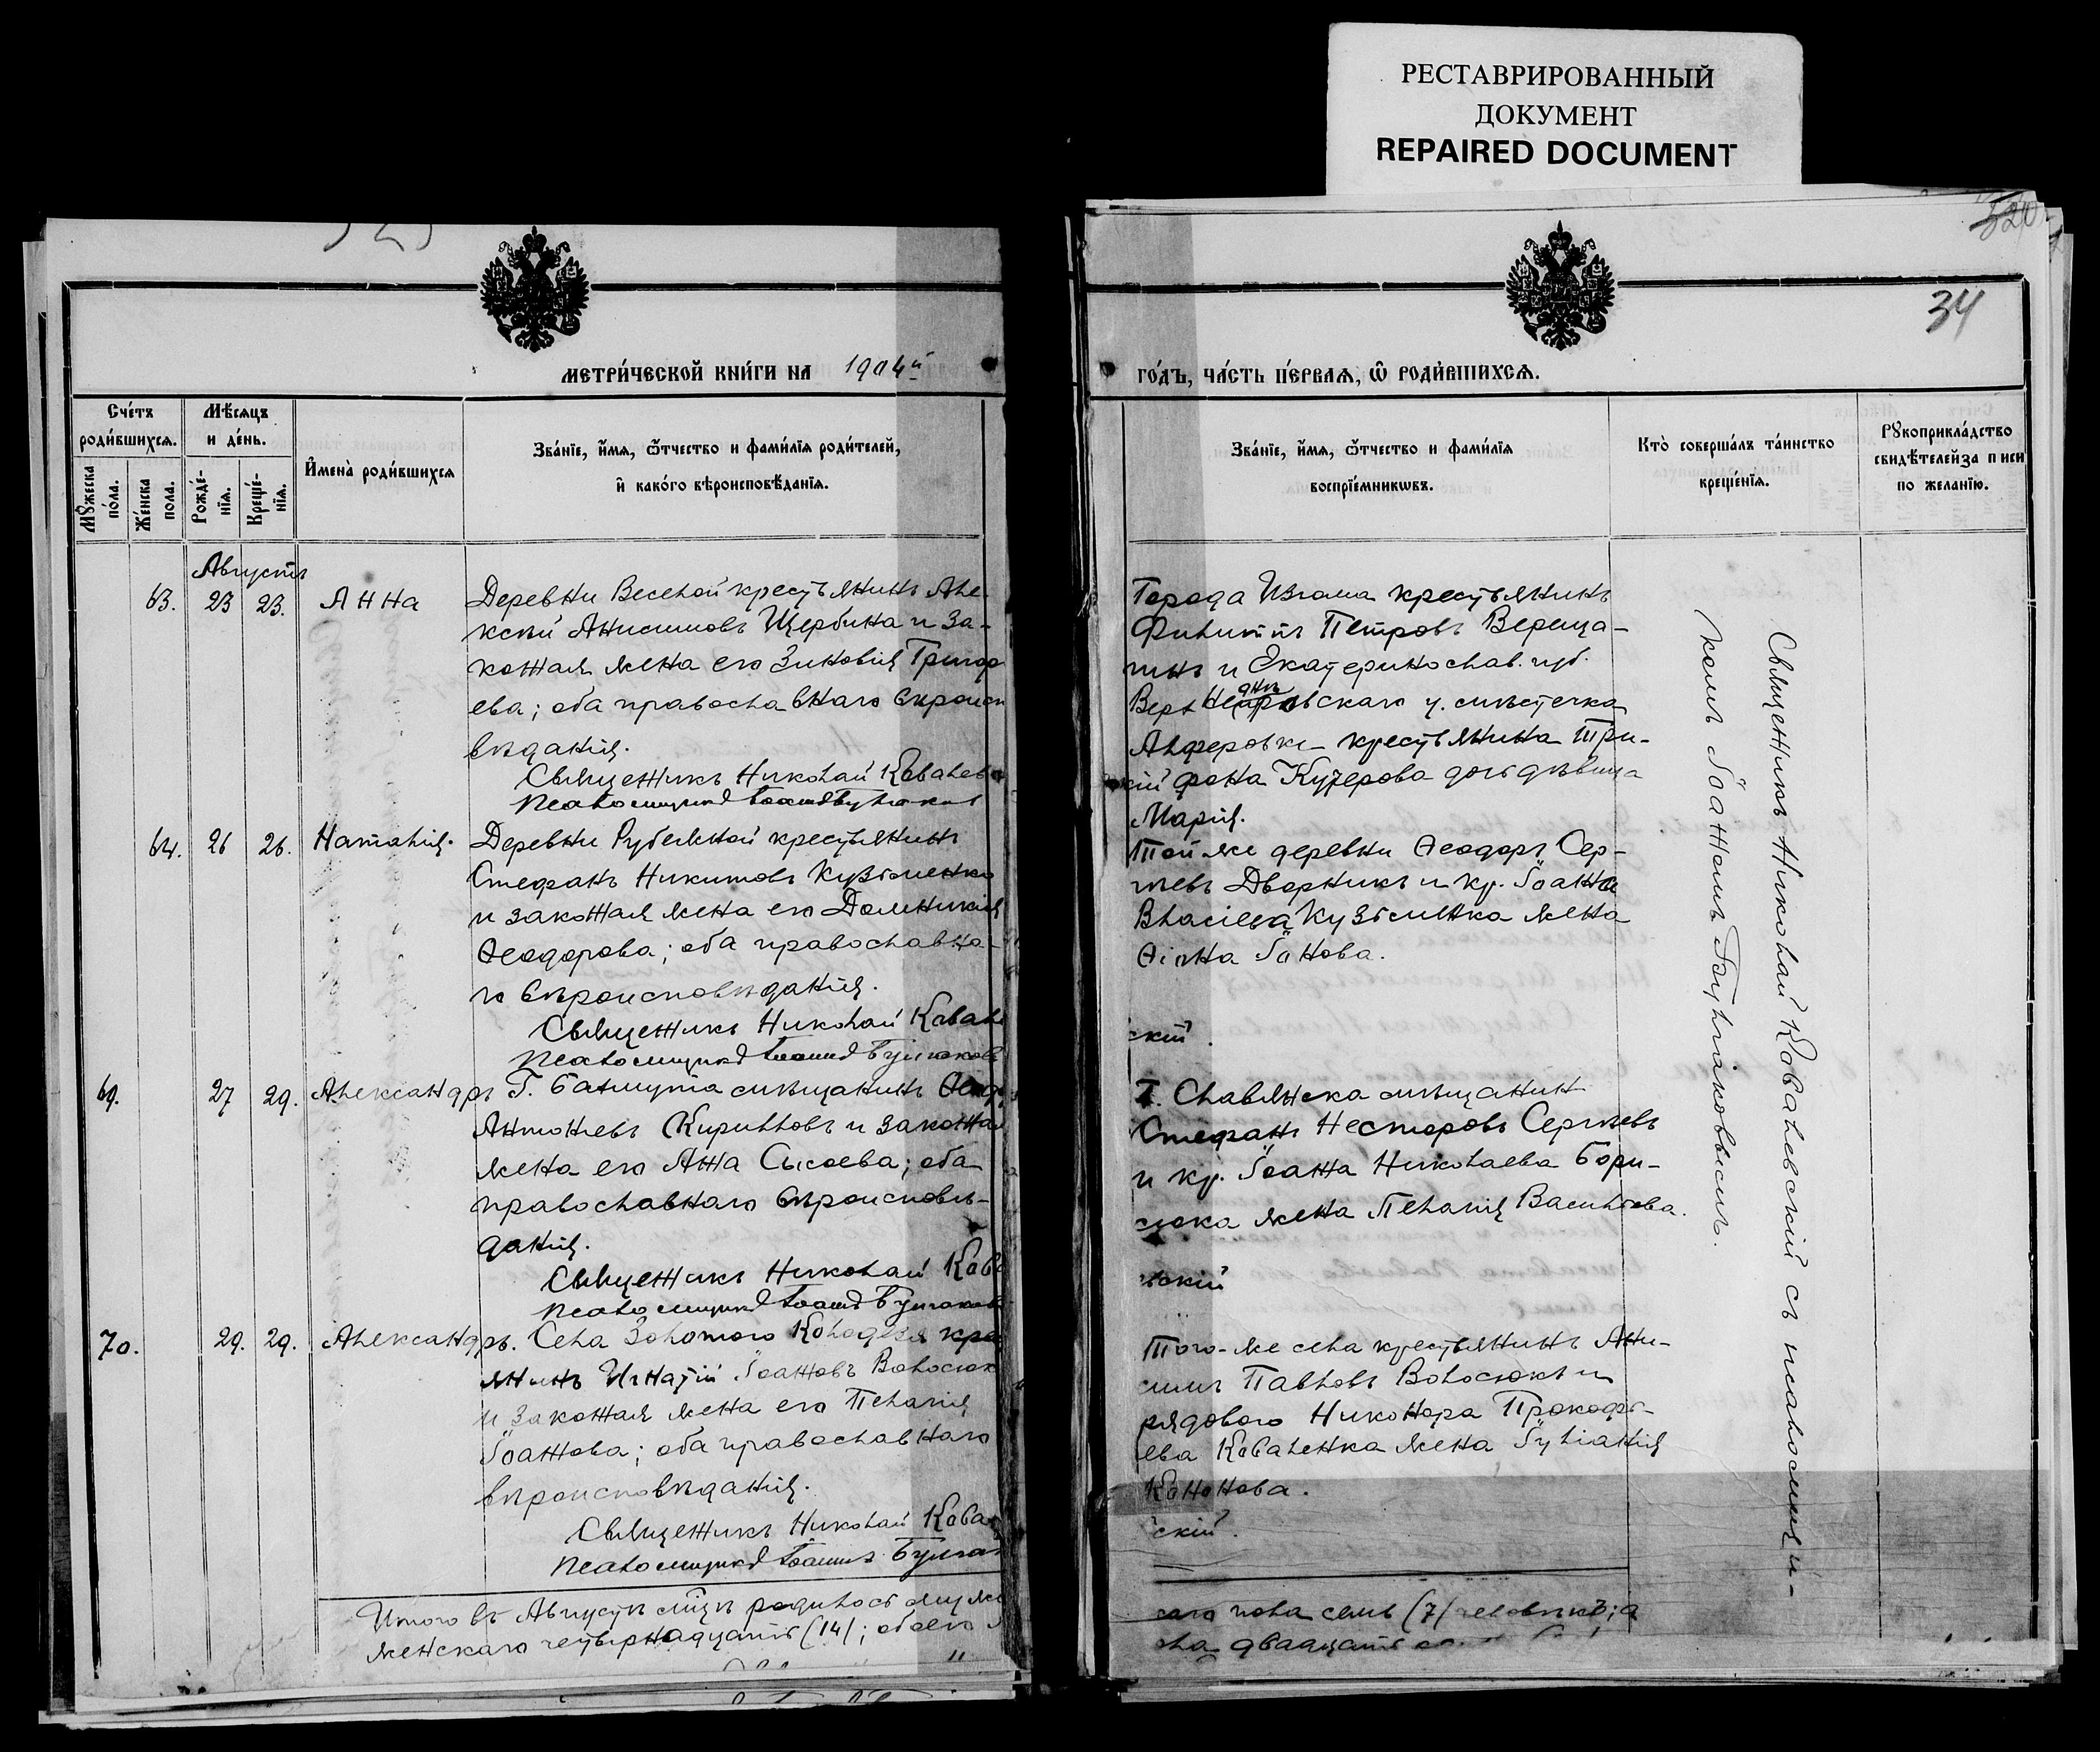 РЕСТАВРИРОВАННЫЙ
ДОКУМЕНТ
REPAIRED DOCUMENT
34
МЕТРИ́ЧЕСКОЙ КНИ́ГИ НА 1904й
ГО́ДЪ, ЧА́СТЬ ПЕ́РВАЯ, Ѿ РОДИ́ВШИХСЯ.
Сче́тъ роди́вшихся.
Мꙋ́жеска по́ла.
Же́нска пола.
Мѣ́сяцъ и де́нь.
Рожде́нїя.
Креще́нїя.
И҆мена̀ роди́вшихся
Зва́нїе, и҆́мя, ѻ҆́тчество и фами́лїя роди́телей,
и҆ како́го вѣроисповѣ́данїя.
Зва́нїе, и҆́мя, ѻ҆́тчество и фами́лїя
воспрїе́мникѡвъ.
Кто̀ соверша́лъ та́инство
креще́нїя.
Рꙋкоприкла́дство
свидѣ́телей за писи
по жела́нїю.
Августъ
63. 23 23. Анна
Деревни Веселой крестьянинъ Але-
ксѣй Анисимовъ Щербина и за-
конная жена его Зиновія Григор
ева; оба православнаго вѣроисп
вѣданія.
Священникъ Николай Ковалев
Псаломщикъ Іоаннъ Булгаков
Города Изюма крестьянинъ
Филиппъ Петровъ Вереща-
гинъ и Екатеринослав. губ.
Верхнеднѣпровскаго у. мѣстечка
Алферовки крестьянина Три-
фона Кучерова дочь дѣвица
скій
Марія.
64. 26 26. Наталія.
Деревни Рубежной крестьянинъ
Стефанъ Никитовъ Кузьменко
и законная жена его Домникія
Ѳеодорова; оба православна-
го вѣроисповѣданія.
Священникъ Николай Ковале
Псаломщикъ Іоаннъ Булгаковъ
Той же деревни Ѳеодоръ Сер-
гѣевъ Дворникъ и кр. Іоанна
Власіева Кузьменка жена
Іонова.
скій.
69. 27 29. Александръ
Г. Бахмута мѣщанинъ Ѳеод
Антоніевъ Кирилловъ и законна
жена его Анна Сысоева; оба
православнаго вѣроисповѣ-
данія.
Священникъ Николай Ков
Псаломщикъ Іоаннъ Булгаковъ
Г. Славянска мѣщанинъ
Стефанъ Несторовъ Сергѣевъ
и кр. Іоанна Николаева Бори-
сюка жена Пелагія Васильева.
скій
70. 29. 29. Александръ.
Села Золотого Колодезя крес
янинъ Игнатій Іоанновъ Волосюк
и законная жена его Пелагія
Іоаннова; оба православнаго
вѣроисповѣданія.
Священникъ Николай Кова
Псаломщикъ Іоаннъ Булгак
Того-же села крестьянинъ Ани-
симъ Павловъ Волосюкъ и
рядового Никонора Прокофі-
ева Коваленка жена Іуліанія
Кононова.
скій.
Священникъ Николай Ковалевскій съ псаломщи-
комъ Іоанномъ Булгаковымъ.
Итого въ Августѣ мцѣ родилось муже
скаго пола семь (7) человѣкъ; а
женскаго четырнадцать (14); обоего
двадцать